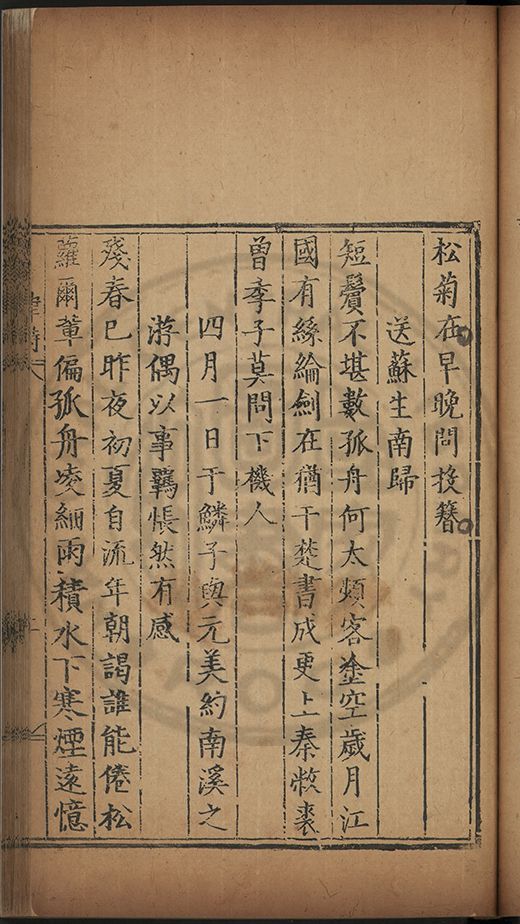 松菊在早晚問投簪
送蘇生南歸
短鬢不堪數孤舟何太頻客塗空歲月江
國有絲綸劍在猶干楚書成更上秦敝裘
曾季子莫問下機人
四月一日于鱗子與元美約南溪之
游偶以事羈悵然有感
殘春巳昨夜初夏自流年朝謁誰能倦松
蘿爾輩偏孤舟凌細雨積水下寒煙遠憶